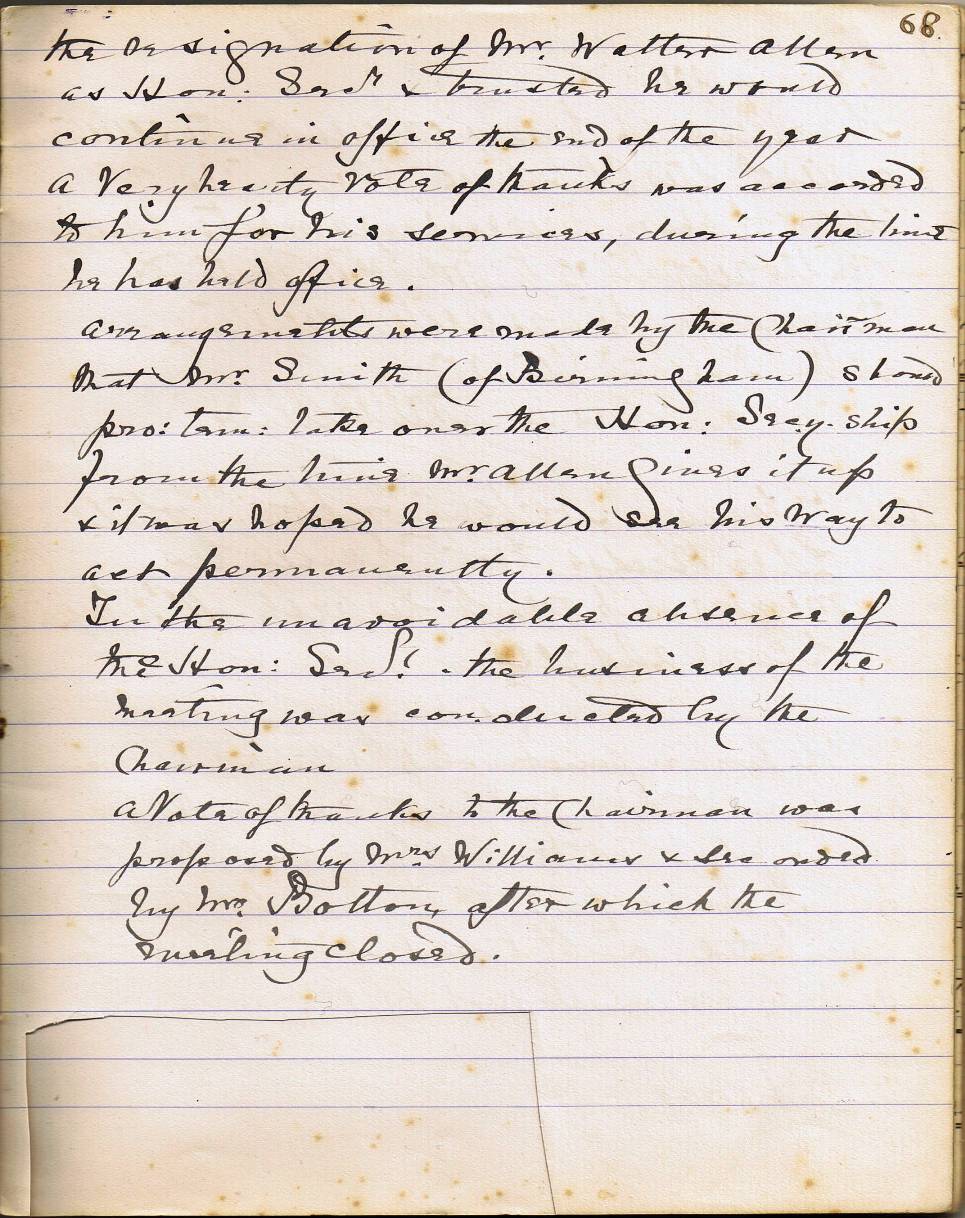 68.
the resignation of Mr. Walter Allen
as Hon: Secy & trusted he would
continue in office the end of the year
A Very hearty Vote of thanks was accorded
to him for his services, during the time
he has held office.
Arrangements were made by the Chairman
that Mr. Smith (of Birmingham) should
pro: tem: take over the Hon: Secy. ship
from the time Mr. Allen Gives it up
& it was hoped he would see his Way to
act permanently.
In the unavoidable absence of
the Hon: Secy. the business of the
meeting was conducted by the
Chairman
A Vote of thanks to the Chairman was
proposed by Mrs Williams & seconded
by Mrs. Bolton, after which the
meeting closed.